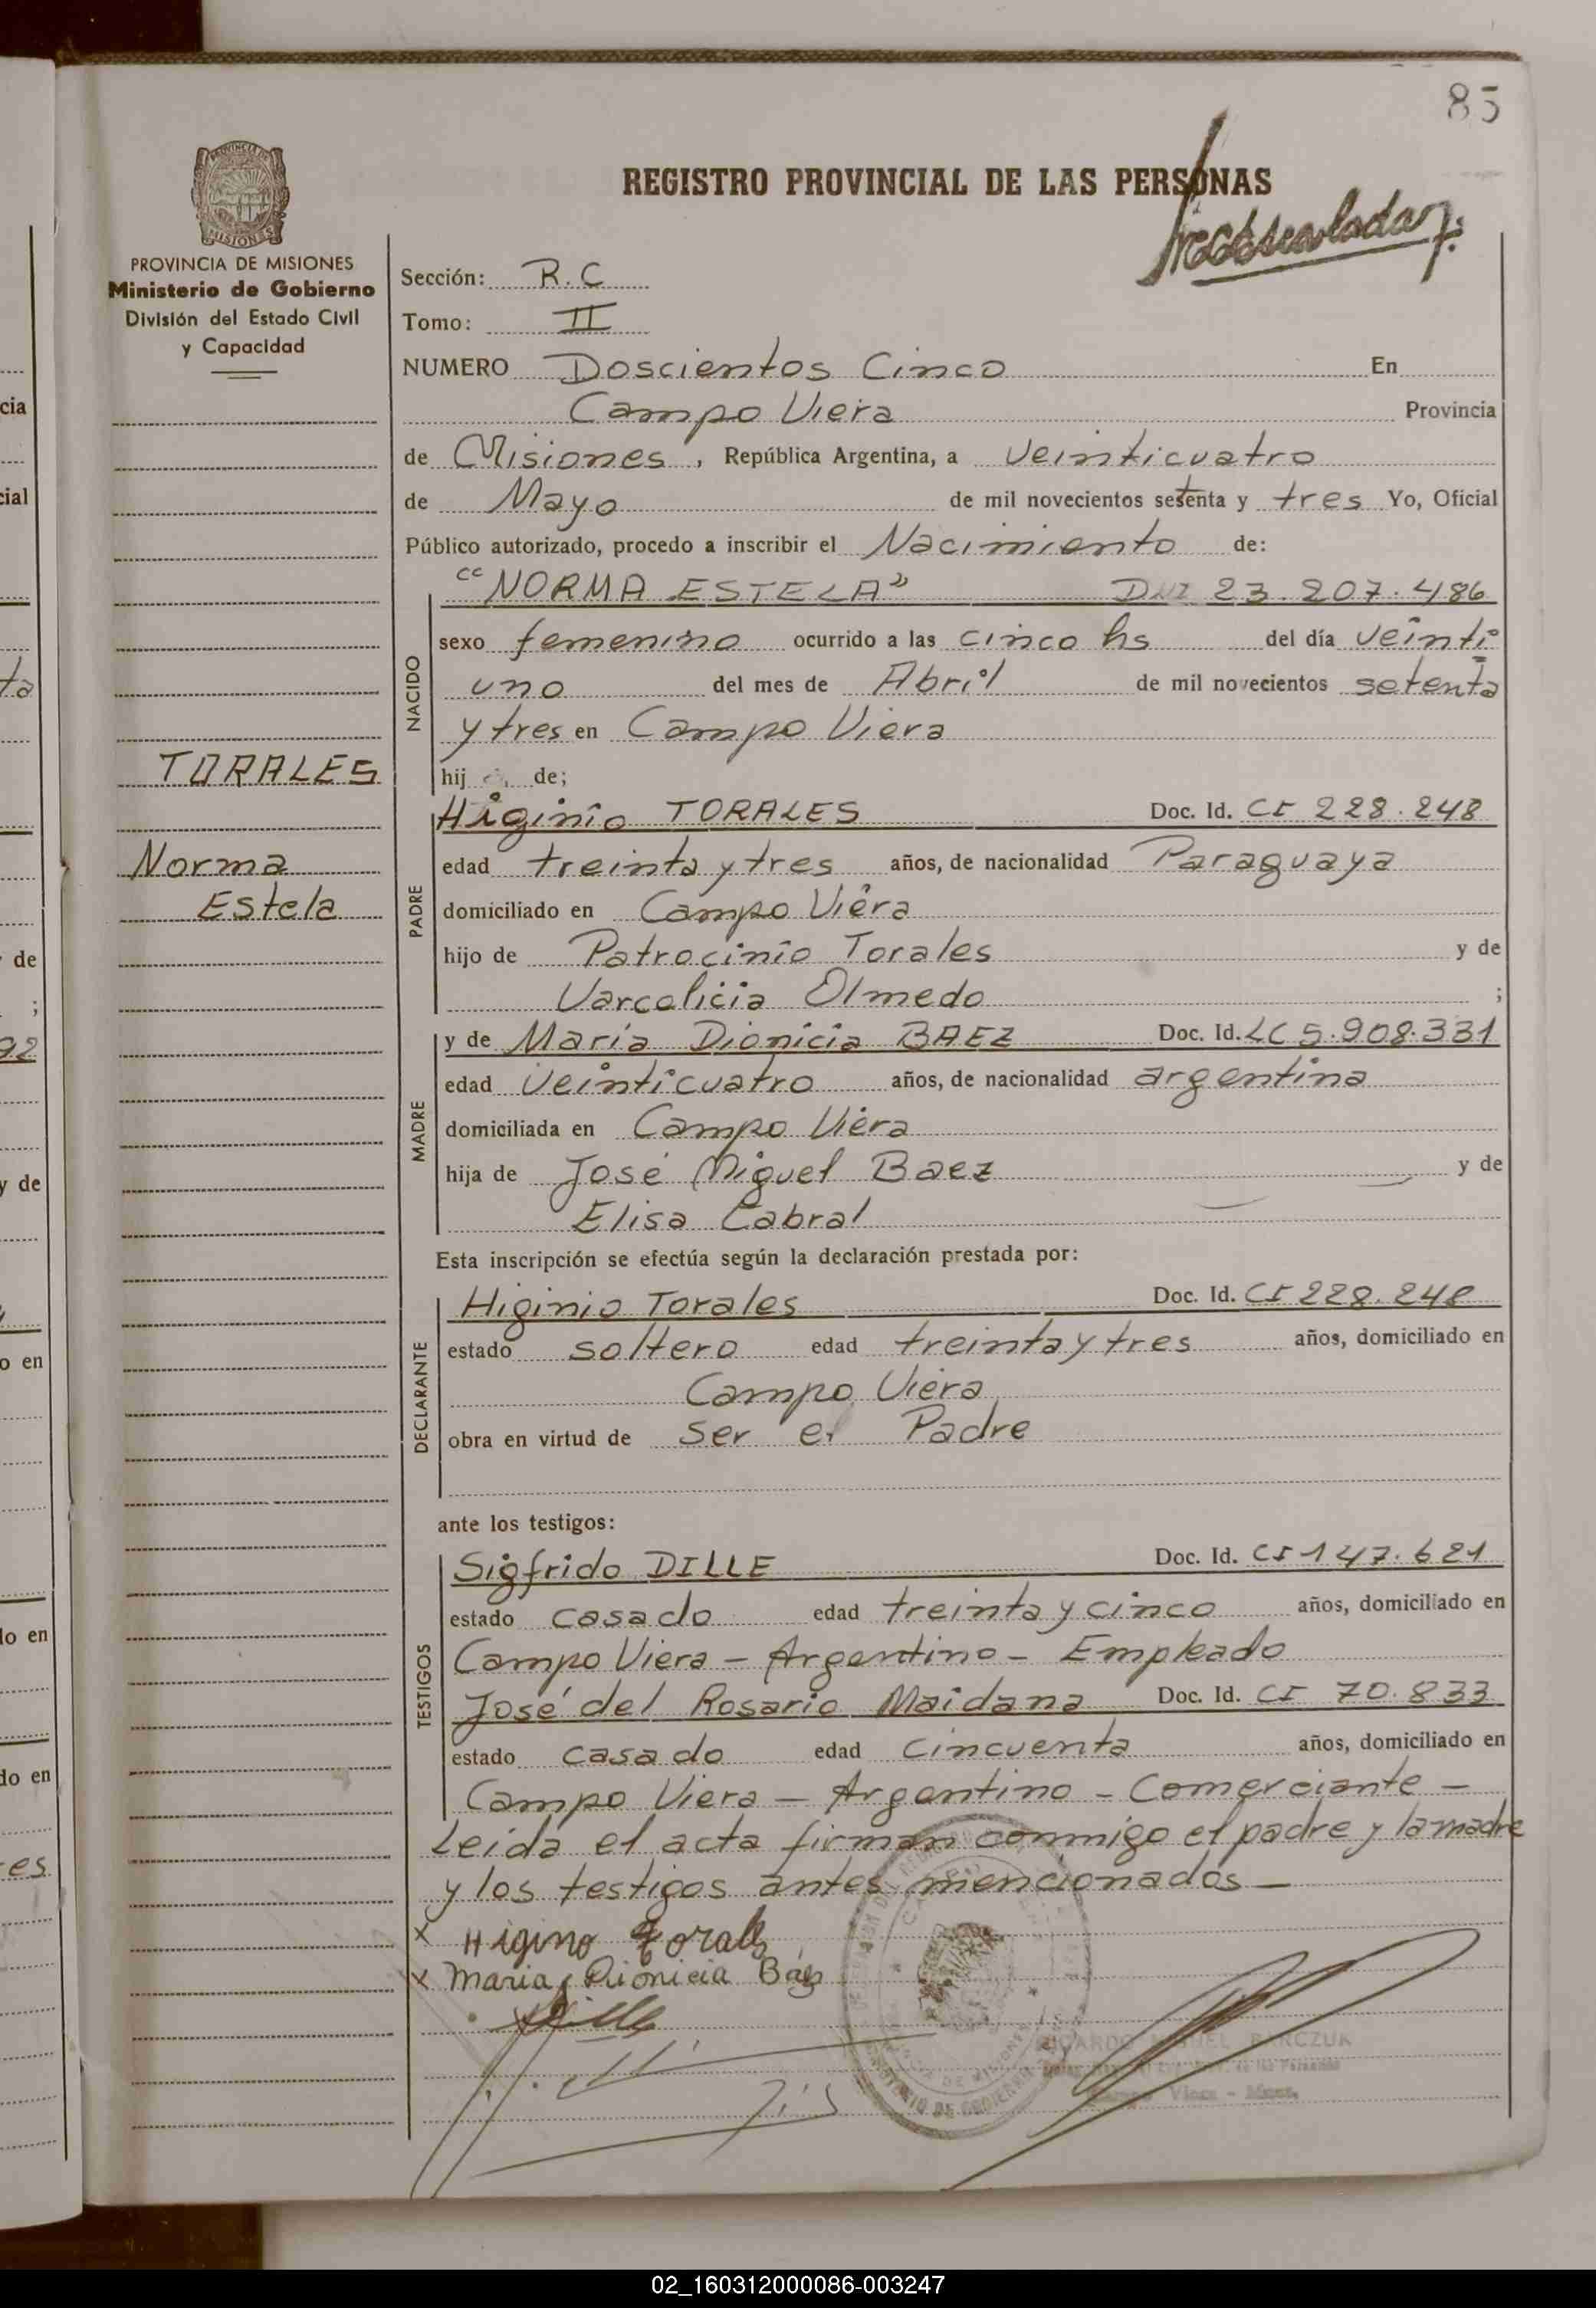 85
REGISTRO PROVINCIAL DE LAS PERSONAS
PROVINCIA DE MISIONES
Ministerio de Gobierno
División del Estado Civil
y Capacidad
Sección: R.C
Tomo: II
NUMERO Doscientos Cinco En
Campo Viera Provincia
de Misiones, República Argentina, a veinticuatro
de Mayo de mil novecientos setenta y tres Yo, Oficial
Público autorizado, procedo a inscribir el Nacimiento de:
"NORMA ESTELA" DNI 23.207.486
NACIDO
sexo femenino ocurrido a las cinco hs del día veinti
uno del mes de Abril de mil novecientos setenta
y tres en Campo Viera
hij de;
TORALES
Norma
Estela
PADRE
Higinio TORALES Doc. Id. CI 228.248
edad treinta y tres años, de nacionalidad Paraguaya
domiciliado en Campo Viera
hijo de Patrocinio Torales y de
Varcalicia Olmedo ;
MADRE
y de Maria Dionicia BAEZ Doc. Id. LC 5.908.331
edad veinticuatro años, de nacionalidad argentina
domiciliada en Campo Viera
hija de José Miguel Baez y de
Elisa Cabral
Esta inscripción se efectúa según la declaración prestada por:
DECLARANTE
Higinio Torales Doc. Id. CI 228.248
estado soltero edad treinta y tres años, domiciliado en
Campo Viera
obra en virtud de ser el Padre
ante los testigos:
TESTIGOS
Sigfrido DILLE Doc. Id. CI 147.621
estado casado edad treinta y cinco años, domiciliado en
Campo Viera - Argentino - Empleado
José del Rosario Maidana Doc. Id. CI 70.833
estado casado edad cincuenta años, domiciliado en
Campo Viera - Argentino - Comerciante -
Leída el acta firman conmigo el padre y la madre
y los testigos antes mencionados -
x Higino Torales
x Maria Dionicia Báez
02_160312000086-003247